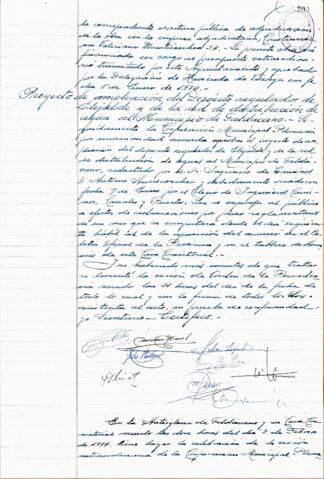 la correspondiente escritura pública de adjudicación
de la obra con la empresa adjudicataria
financiado con cargo al presupuesto extraordina-
rio tramitado por este Ayuntamiento y aprobado
por la Delegación de Hacienda de
cha 5 de Enero de 1974.
Proyecto de ampliación del Depósito regulador de
Elejalde y de la red de distribución de
agua al Municipio de Galdácano.- Se-
guidamente la Corporación Municipal Plenaria
por unanimidad acuerda aprobar el proyecto de am-
pliación del depósito regulador de Elejalde y de la red
de distribución de aguas al Municipio de Galdá-
cano, redactado por el Sr. Ingeniero de Caminos
D. y debidamente visado con
fecha 4 de Enero por el Colegio de Ingenieros de Cami-
nos, Canales y Puertos. Que se exponga al público
a efectos de reclamaciones por plazo reglamentario
de un mes que se computará desde el día siguien-
te hábil al de la inserción del anuncio en el Bo-
letín Oficial de la Provincia y en el tablón de anun-
cios de esta Casa Consistorial.
Y no habiendo más asuntos de que tratar
se levantó la sesión de Orden de la Presiden-
cia siendo las 21 horas del día de la fecha de
todo lo cual y con la firma de todos los Srs.
asistentes al acto, en prueba de conformidad
yo Secretario.- Certifico.-
En la Anteiglesia de Galdácano y su Casa Con-
sistorial siendo las doce horas del día de Febre-
ro de 1974. tiene lugar la celebración de la sesión
extraordinaria de la Corporación Municipal Plena